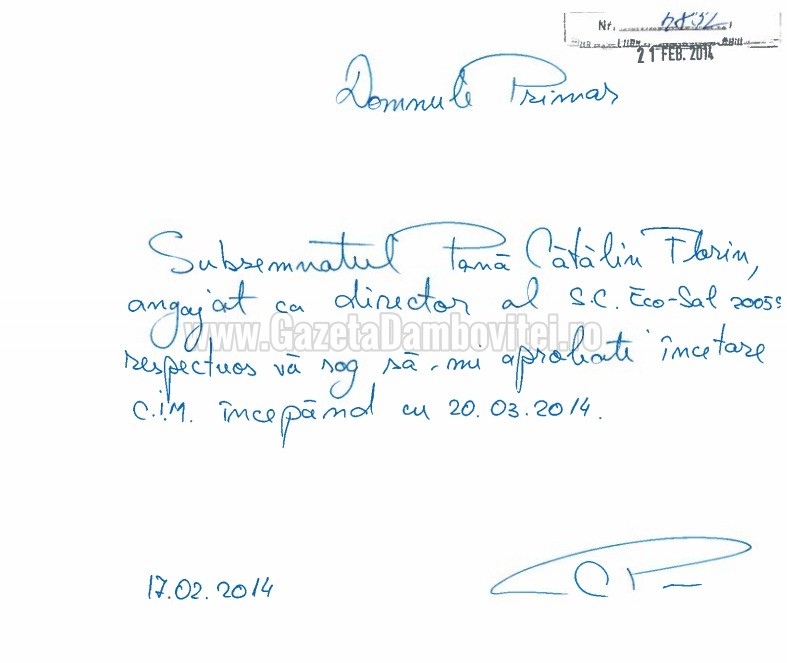 Nr.
21 FEB. 2014
Domnule Primar
Subsemnatul Pană Cătălin Florin,
angajat ca director al S.C. Eco-Sal 2005
www.GazetaDambovitei.ro
respectuos vă rog să-mi aprobati încetare
C.I.M. începând cu 20.03.2014.
17.02.2014